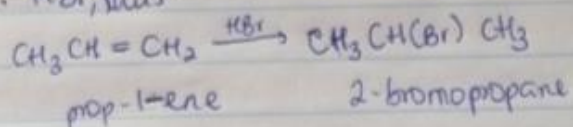 CH₃CH = CH₂ —HBr→ CH₃CH(Br) CH₃
prop-1-ene 2-bromopropane